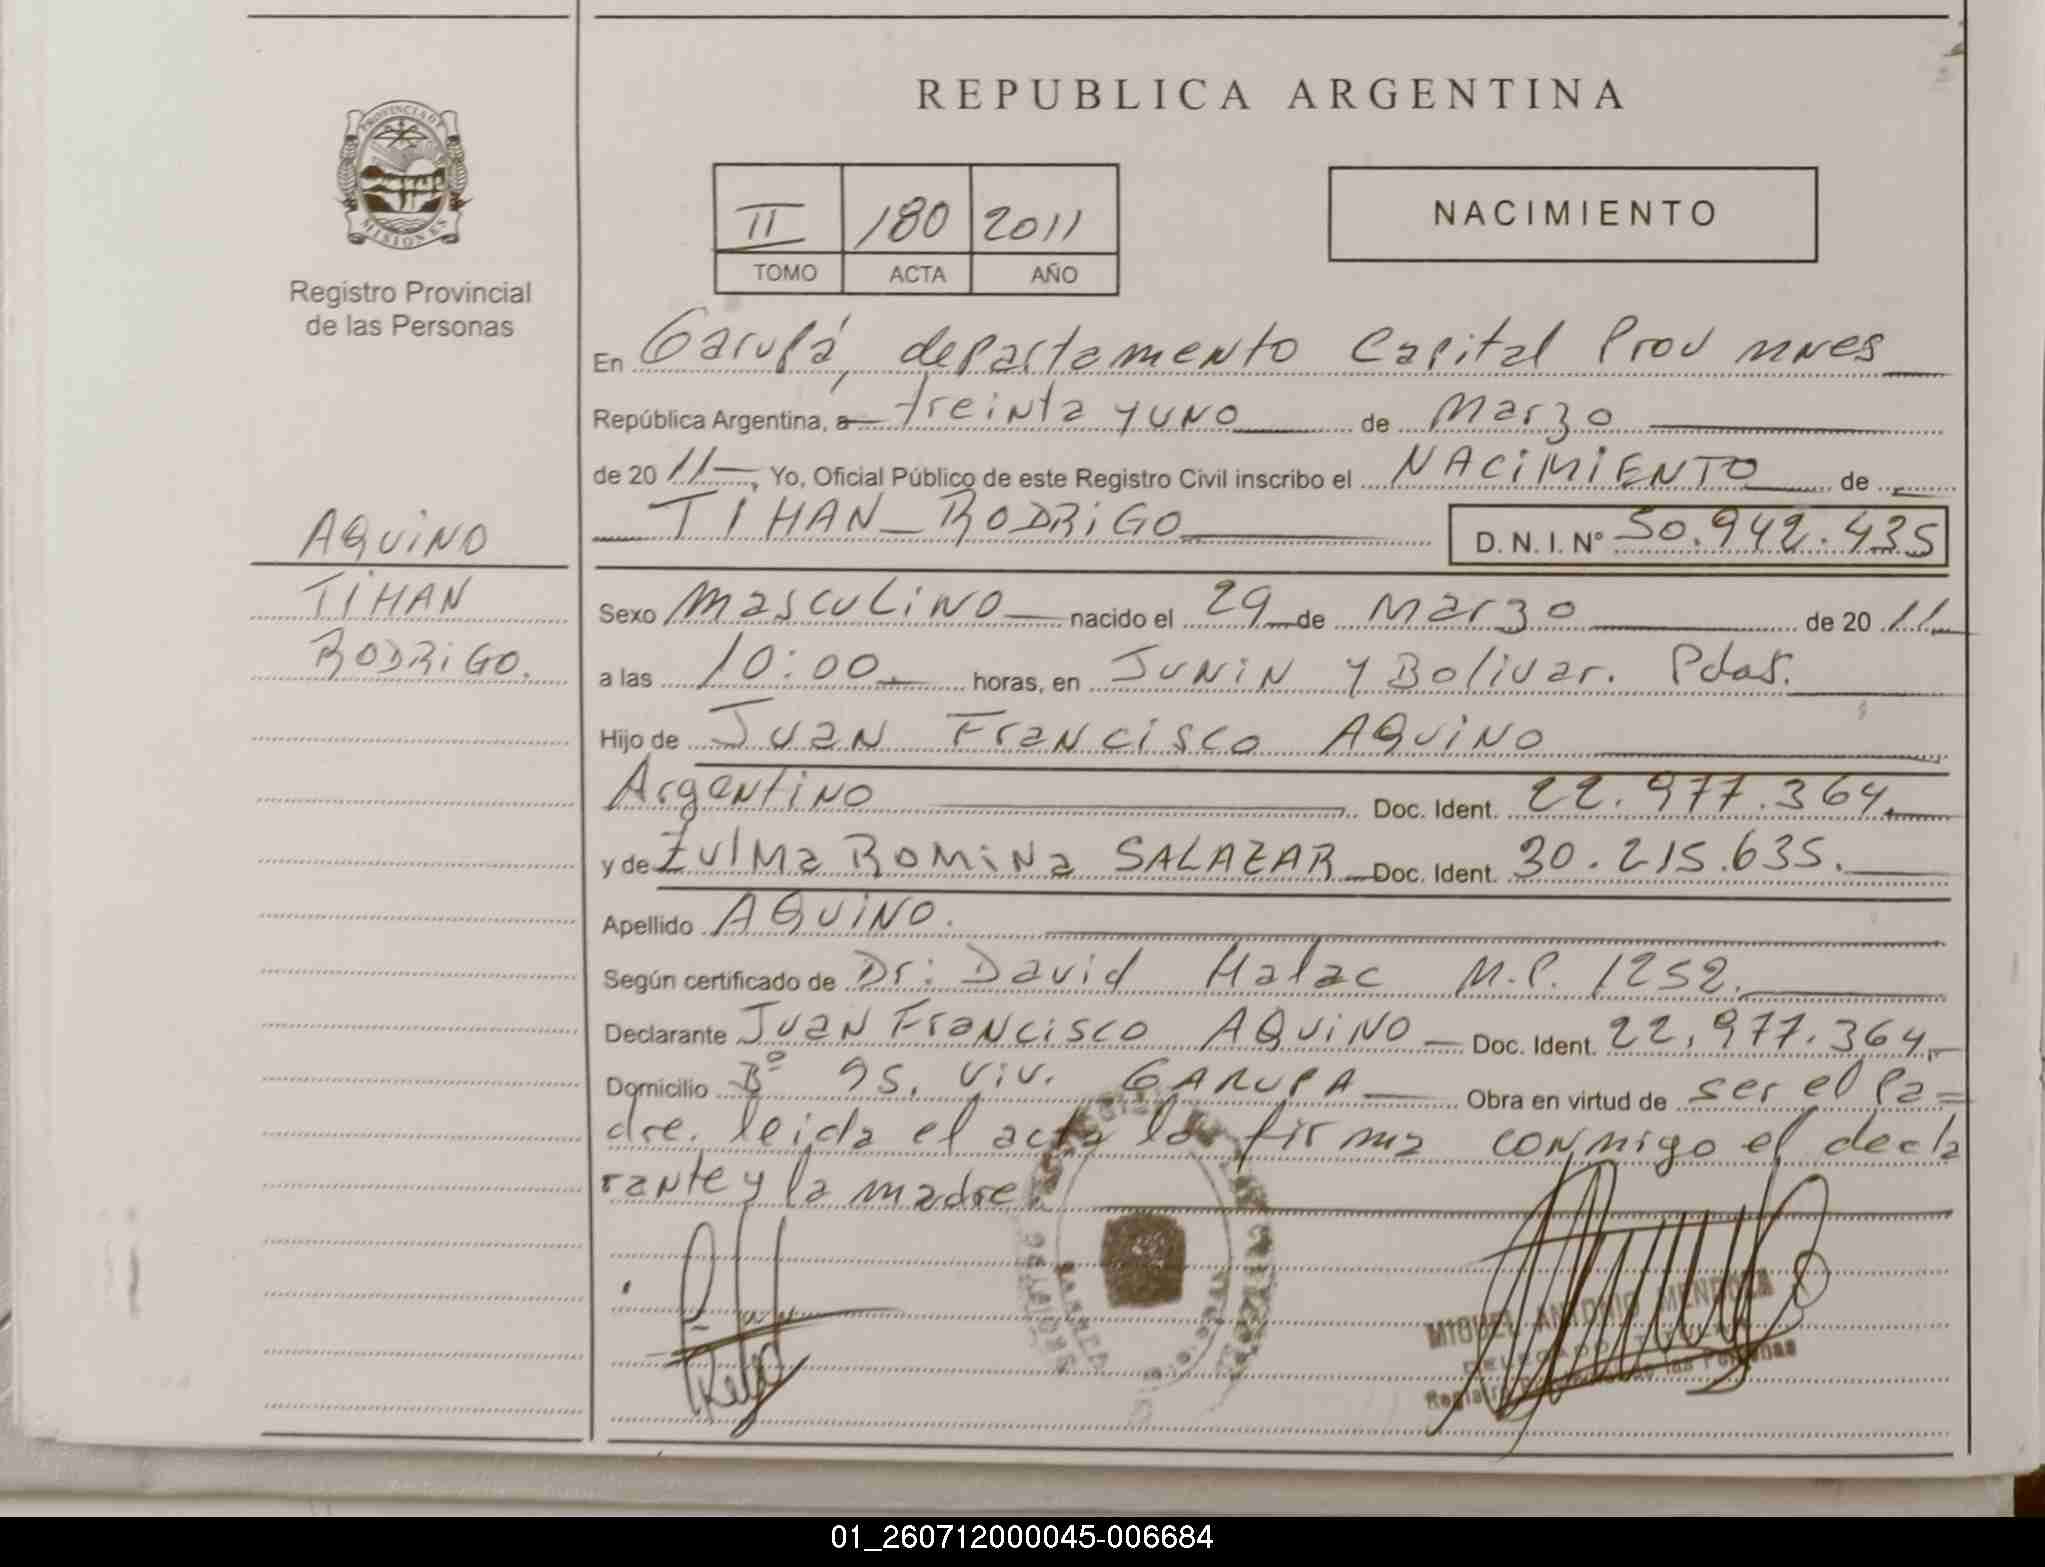 REPUBLICA ARGENTINA
PROVINCIA DE
MISIONES
Registro Provincial
de las Personas
II 180 2011
TOMO ACTA AÑO
NACIMIENTO
En Garupá, departamento Capital Prov mnes
República Argentina, a treinta y uno de Marzo
de 20 11, Yo, Oficial Público de este Registro Civil inscribo el NACIMIENTO de
TIHAN RODRIGO D. N. I. Nº 50.942.435
AQUINO
TIHAN
RODRIGO.
Sexo Masculino nacido el 29 de Marzo de 20 11
a las 10:00 horas, en Junin y Bolivar. Pdas.
Hijo de Juan Francisco AQUINO
Argentino Doc. Ident. 22.977.364
y de Zulma Romina SALAZAR Doc. Ident. 30.215.635.
Apellido AQUINO.
Según certificado de Dr: David Halac M.P. 1252.
Declarante Juan Francisco AQUINO Doc. Ident. 22.977.364
Domicilio Bº 95. viv. GARUPA Obra en virtud de ser el Pa=
dre. leida el acta la firma conmigo el decla
rante y la madre
MIGUEL ANTONIO MENDOZA
DELEGADO
Registro de las Personas
01_260712000045-006684